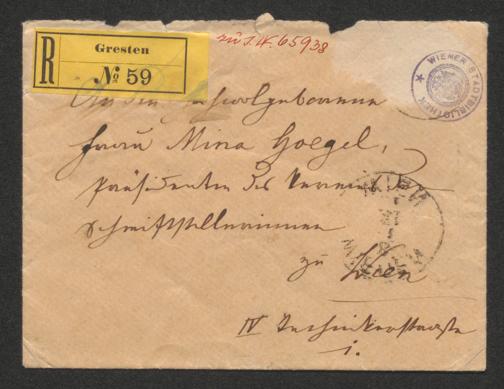 R
Gresten
№ 59
zu J.N. 65938
WIENER STADTBIBLIOTHEK
An die hochwolgeborenne
Frau Mina Hoegel,
Präsidentin des Vereins
Schriftstellerinnen
zu Wien
IV Technikerstrasse